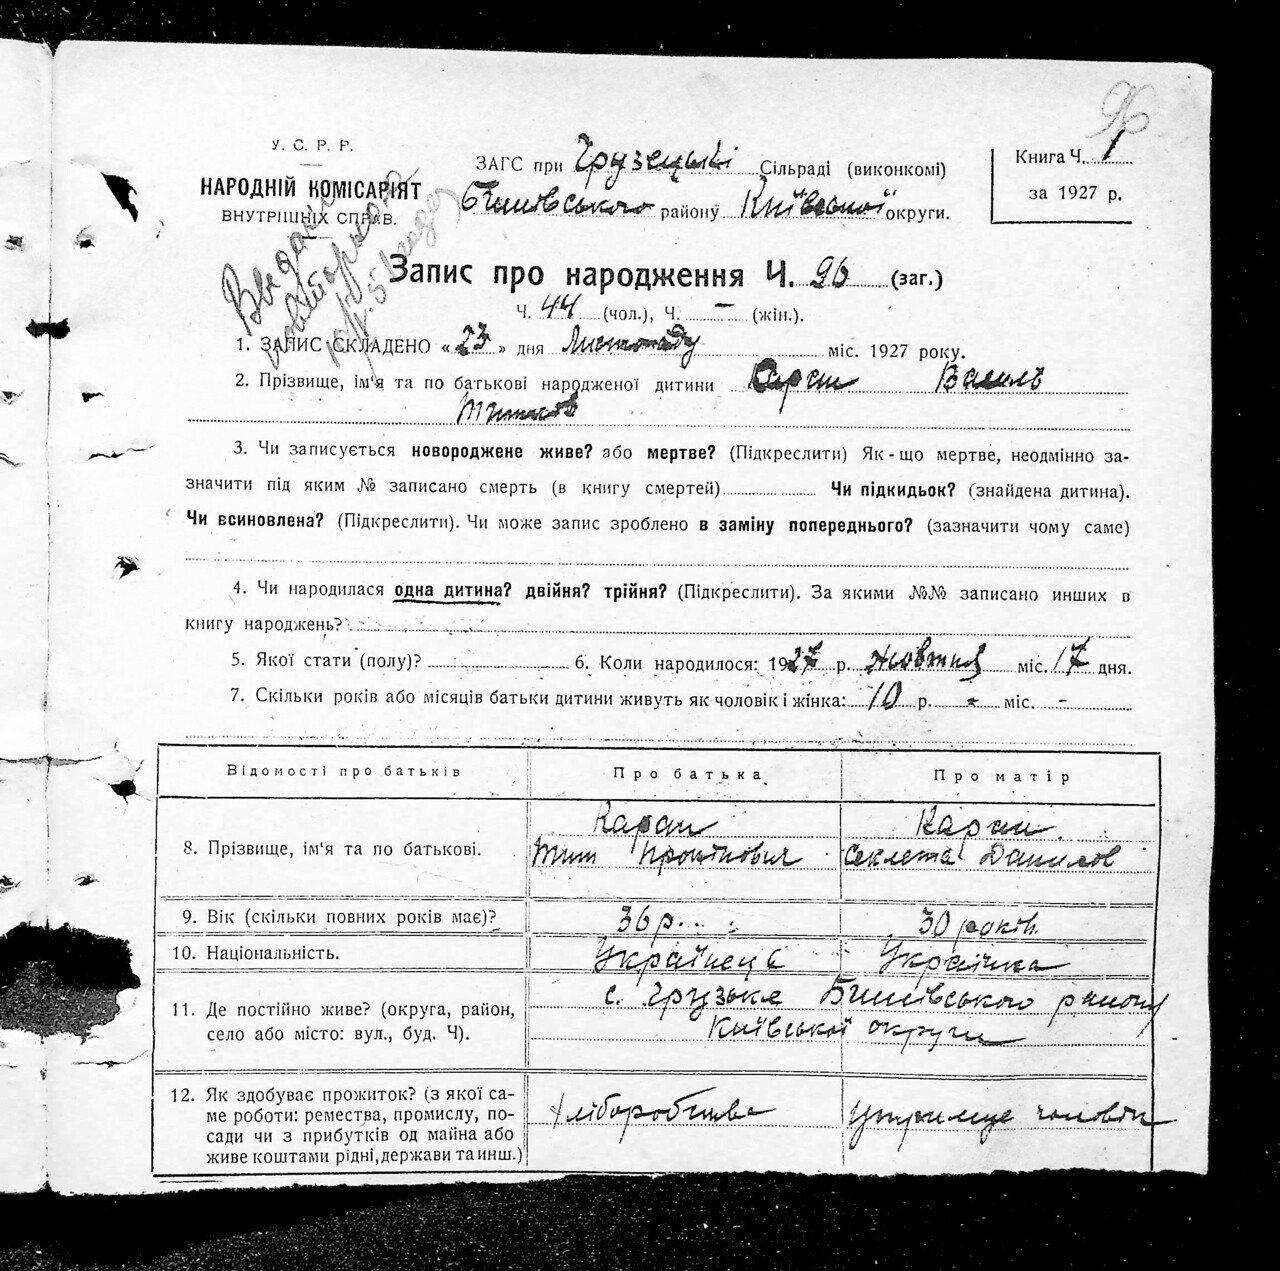 96
У. С. Р. Р.
НАРОДНІЙ КОМІСАРІЯТ
ВНУТРІШНІХ СПРАВ.
ЗАГС при Грузецькі Сільраді (виконкомі)
Бишівського району Київської округи.
Книга Ч. 1
за 1927 р.
Запис про народження Ч. 96 (заг.)
Ч. 44 (чол.), Ч. – (жін.).
1. ЗАПИС СКЛАДЕНО «23» дня Листопаду міс. 1927 року.
2. Прізвище, ім'я та по батькові народженої дитини Карпи Василь
3. Чи записується новороджене живе? або мертве? (Підкреслити) Як-що мертве, неодмінно за-
значити під яким № записано смерть (в книгу смертей) Чи підкидьок? (знайдена дитина).
Чи всиновлена? (Підкреслити). Чи може запис зроблено в заміну попереднього? (зазначити чому саме)
4. Чи народилася одна дитина? двійня? трійня? (Підкреслити). За якими №№ записано инших в
книгу народжень?
5. Якої стати (полу)? 6. Коли народилося: 1927 р. Жовтня міс. 17 дня.
7. Скільки років або місяців батьки дитини живуть як чоловік і жінка: 10 р. - міс. -
Відомості про батьків Про батька Про матір
8. Прізвище, ім'я та по батькові.
Карпи Карпи
Тит Прокопович Секлета Данилов
9. Вік (скільки повних років має)? 36 р. 30 років
10. Національність. Українець Українка
11. Де постійно живе? (округа, район,
село або місто: вул., буд. Ч).
с. Грузьке Бишівського району
Київської округи
12. Як здобуває прожиток? (з якої са-
ме роботи: ремества, промислу, по-
сади чи з прибутків од майна або
живе коштами рідні, держави та инш.)
Хліборобства Утримує чоловік